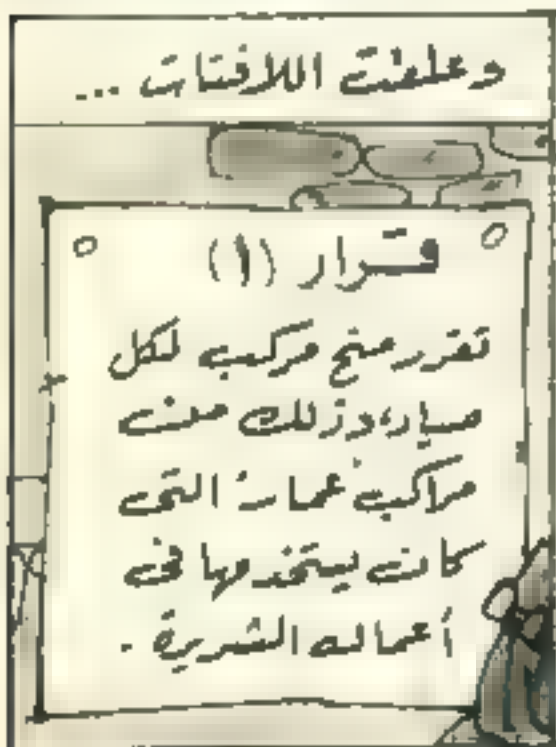 وعلقت اللافتات ...
قرار (١)
تقرر منح مركب لكل
صياد، وذلك من
مراكب عمار التى
كان يستخدمها فى
أعماله الشريرة .